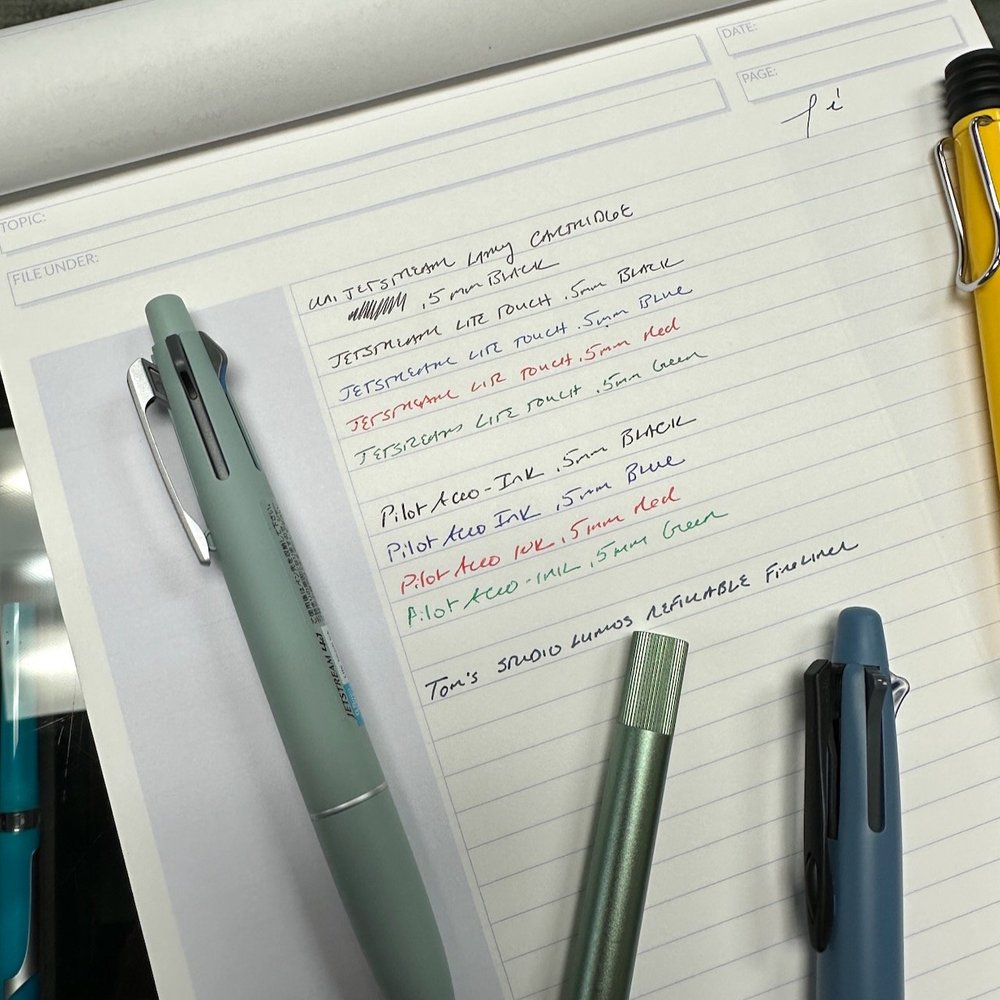 DATE:
PAGE:
TOPIC:
FILE UNDER:
UNI JETSTREAM LAMY CARTRIDGE
.5mm BLACK
JETSTREAM LITE TOUCH .5mm BLACK
JETSTREAM LITE TOUCH .5mm Blue
JETSTREAM LITE TOUCH .5mm Red
JETSTREAM LITE TOUCH .5mm Green
Pilot Acro-Ink .5mm BLACK
Pilot Acro Ink .5mm Blue
Pilot Acro Ink .5mm Red
Pilot Acro-Ink .5mm Green
Tom's STUDIO LUMOS REFILLABLE Fineliner
JETSTREAM